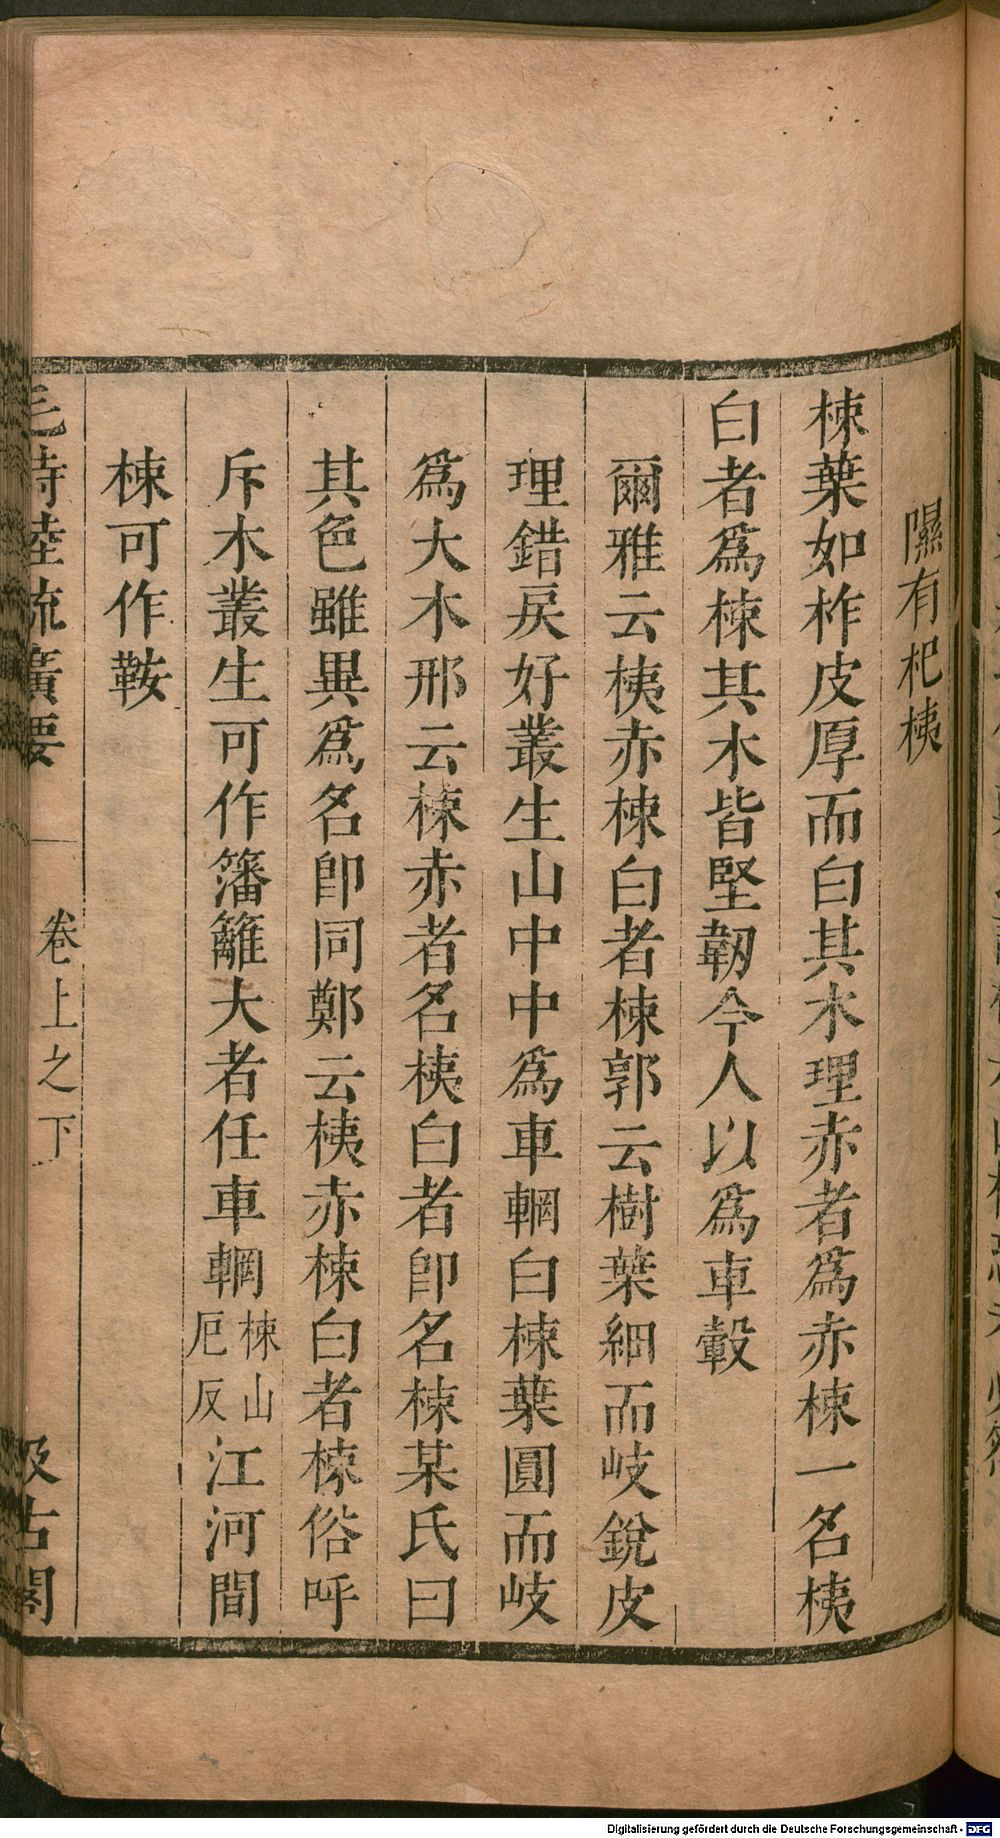 隰有杞桋
梀葉如柞皮厚而白其木理赤者爲赤梀一名桋
白者爲梀其木皆堅韌今人以爲車轂
爾雅云桋赤梀白者梀郭云樹葉細而岐銳皮
理錯戾好叢生山中中爲車輞白梀葉圓而岐
爲大木邢云梀赤者名桋白者卽名梀某氏曰
其色雖異爲名卽同鄭云桋赤梀白者梀俗呼
斥木叢生可作籓籬大者任車輞梀山厄反江河間
梀可作鞍
毛詩陸疏廣要 卷上之下 汲古閣
Digitalisierung gefördert durch die Deutsche Forschungsgemeinschaft - DFG